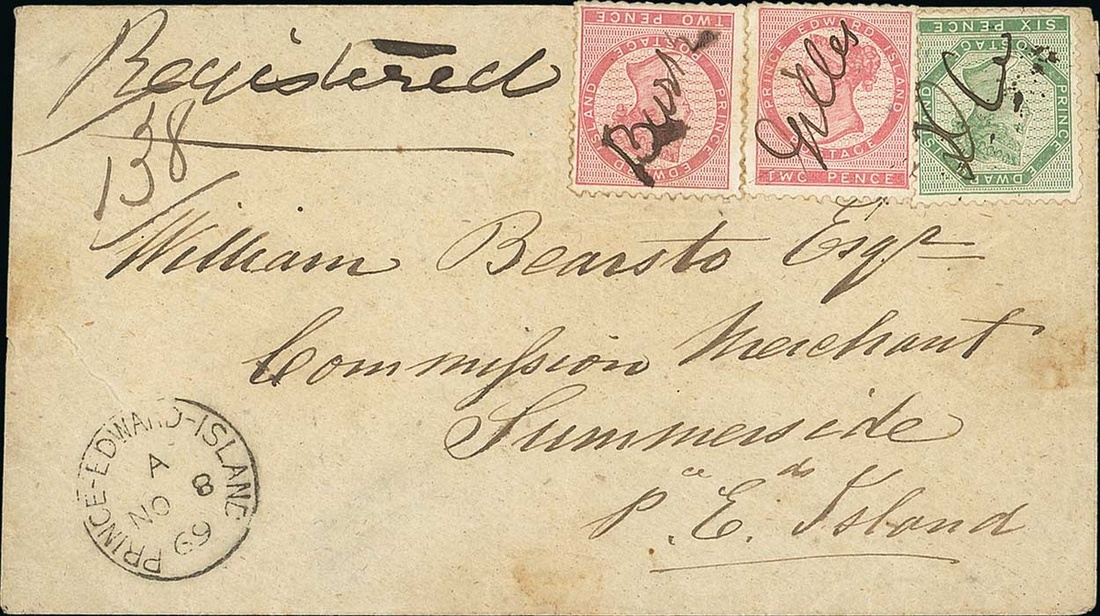 Registered
138
TWO PENCE
POSTAGE
PRINCE EDWARD ISLAND
PRINCE EDWARD ISLAND
POSTAGE
TWO PENCE
Gilles
SIX PENCE
POSTAGE
PRINCE EDWARD ISLAND
William Bearsto Esqr
Commission Merchant
Summerside
P.ce E.d Island
PRINCE-EDWARD-ISLAND
A
NO 8
69